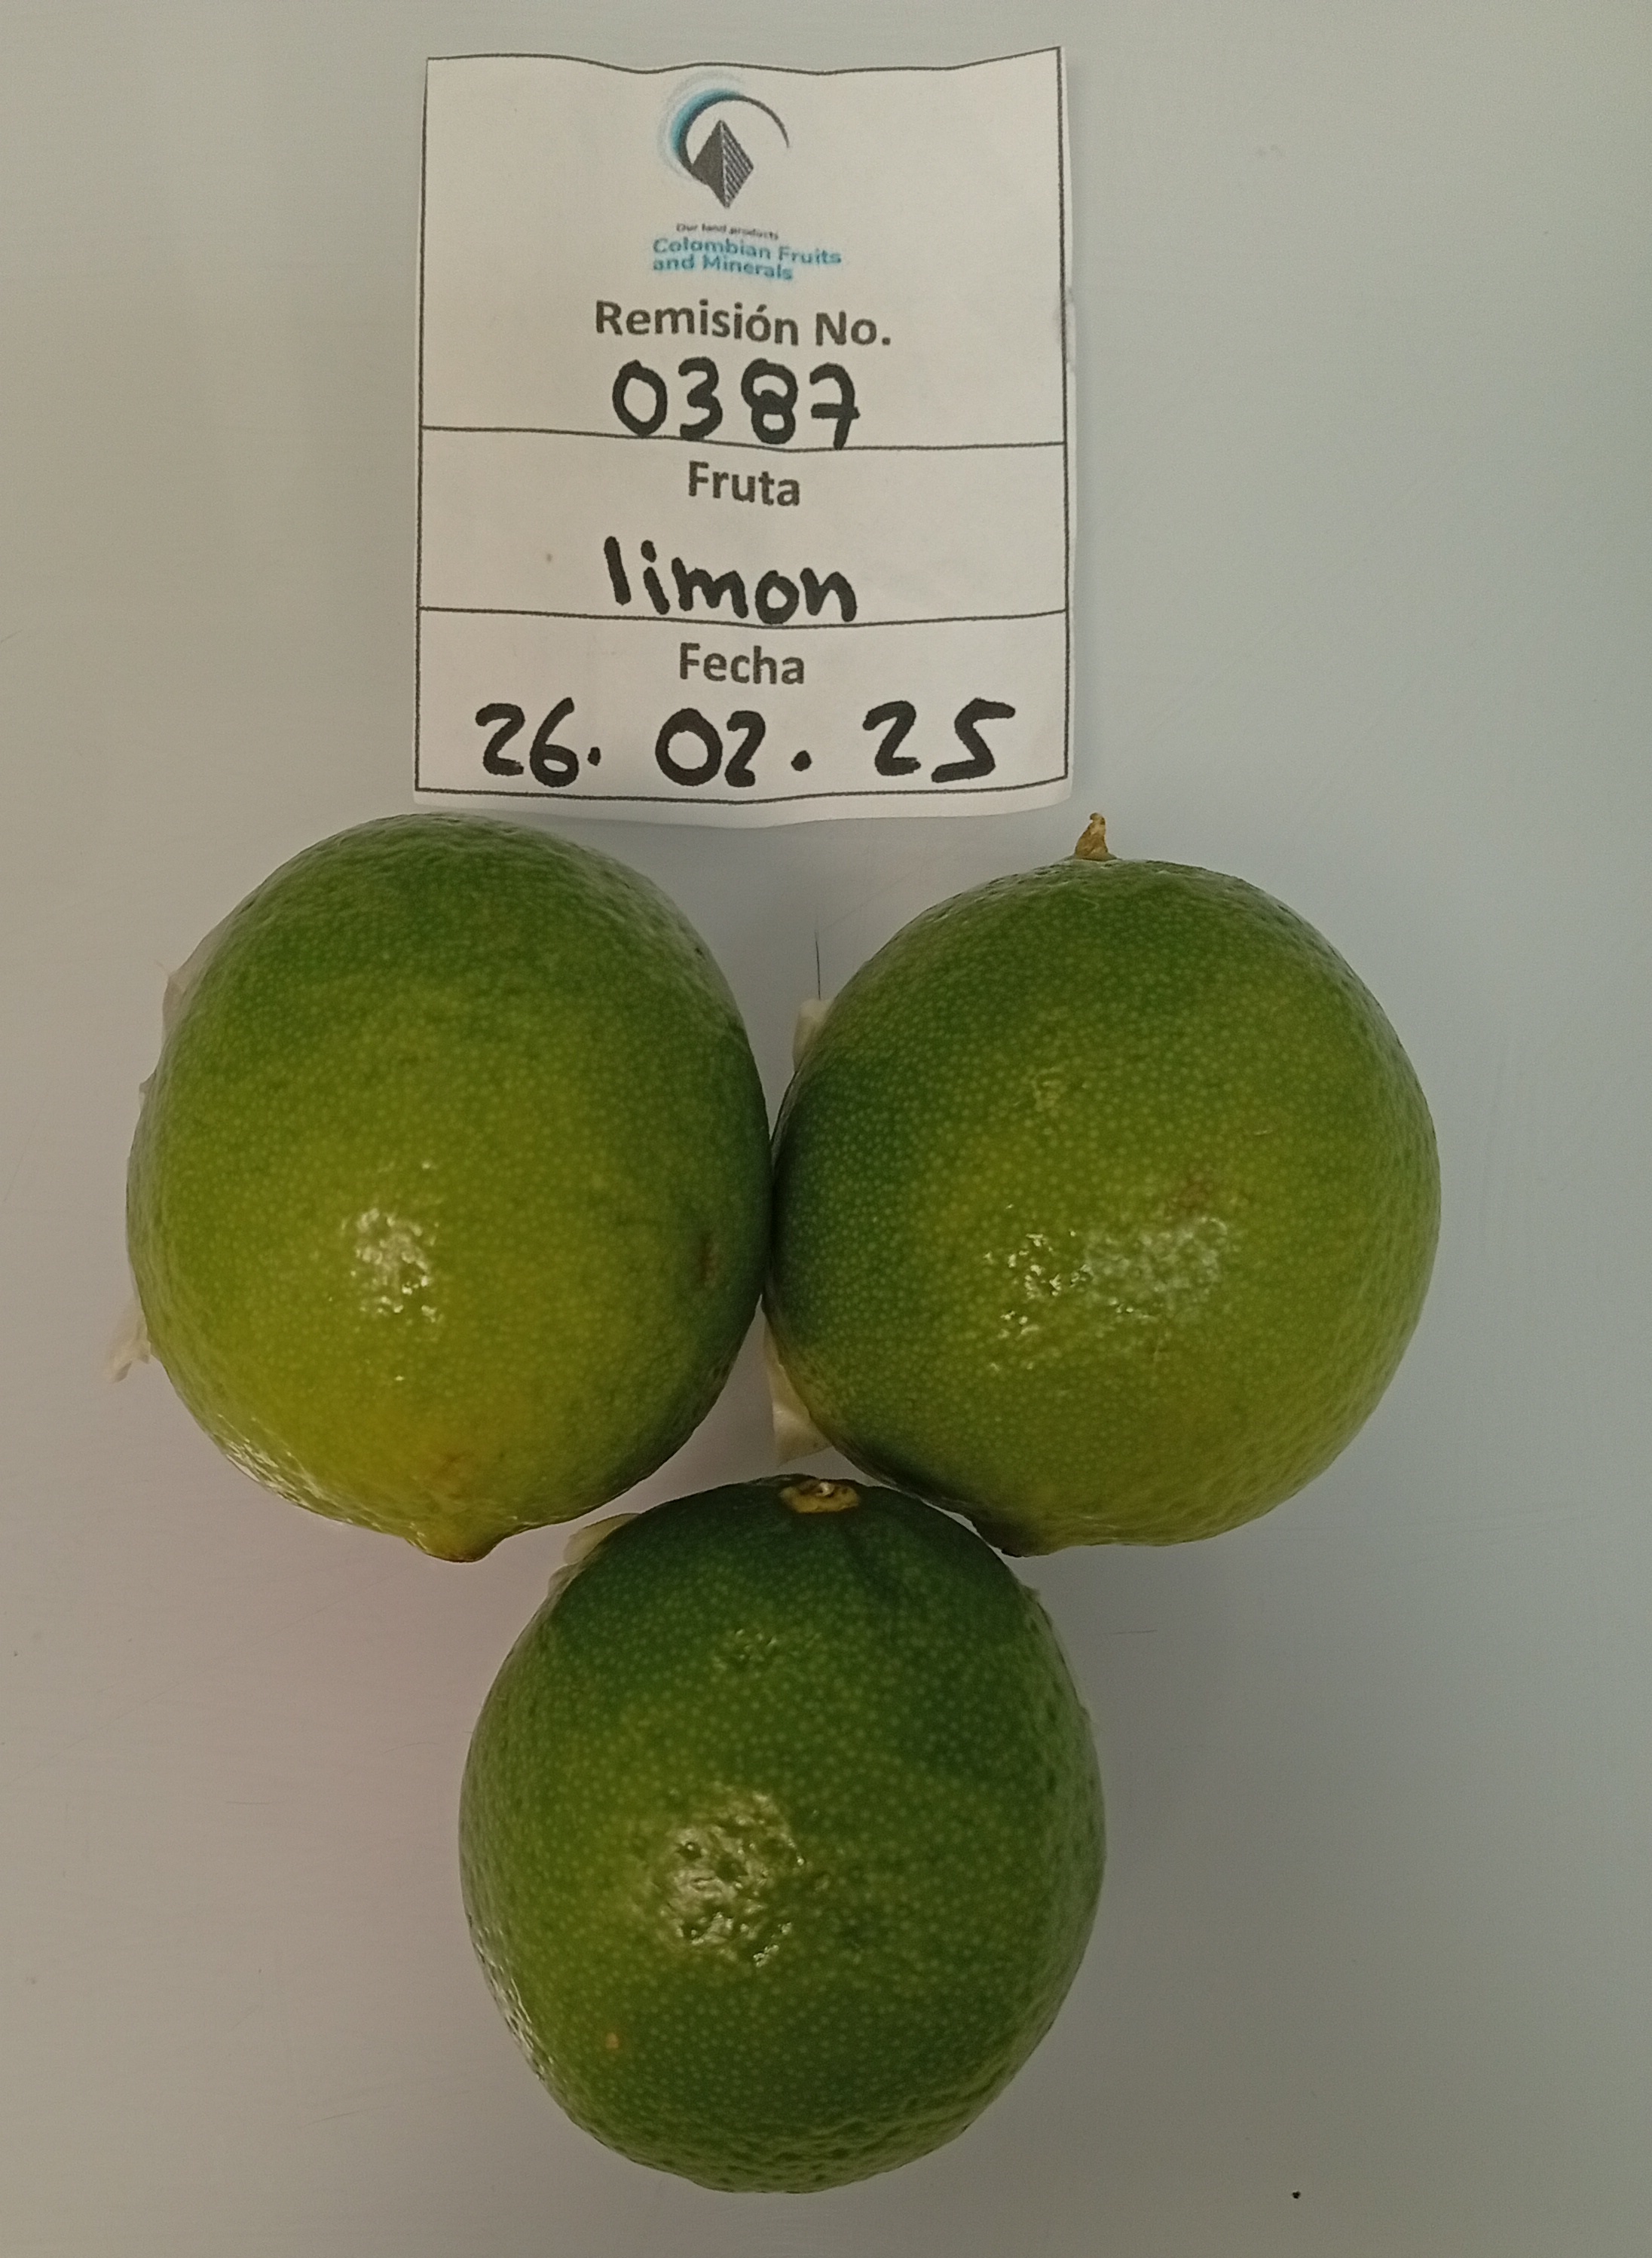 Our land products
Colombian Fruits
and Minerals
Remisión No.
0387
Fruta
limon
Fecha
26. 02. 25